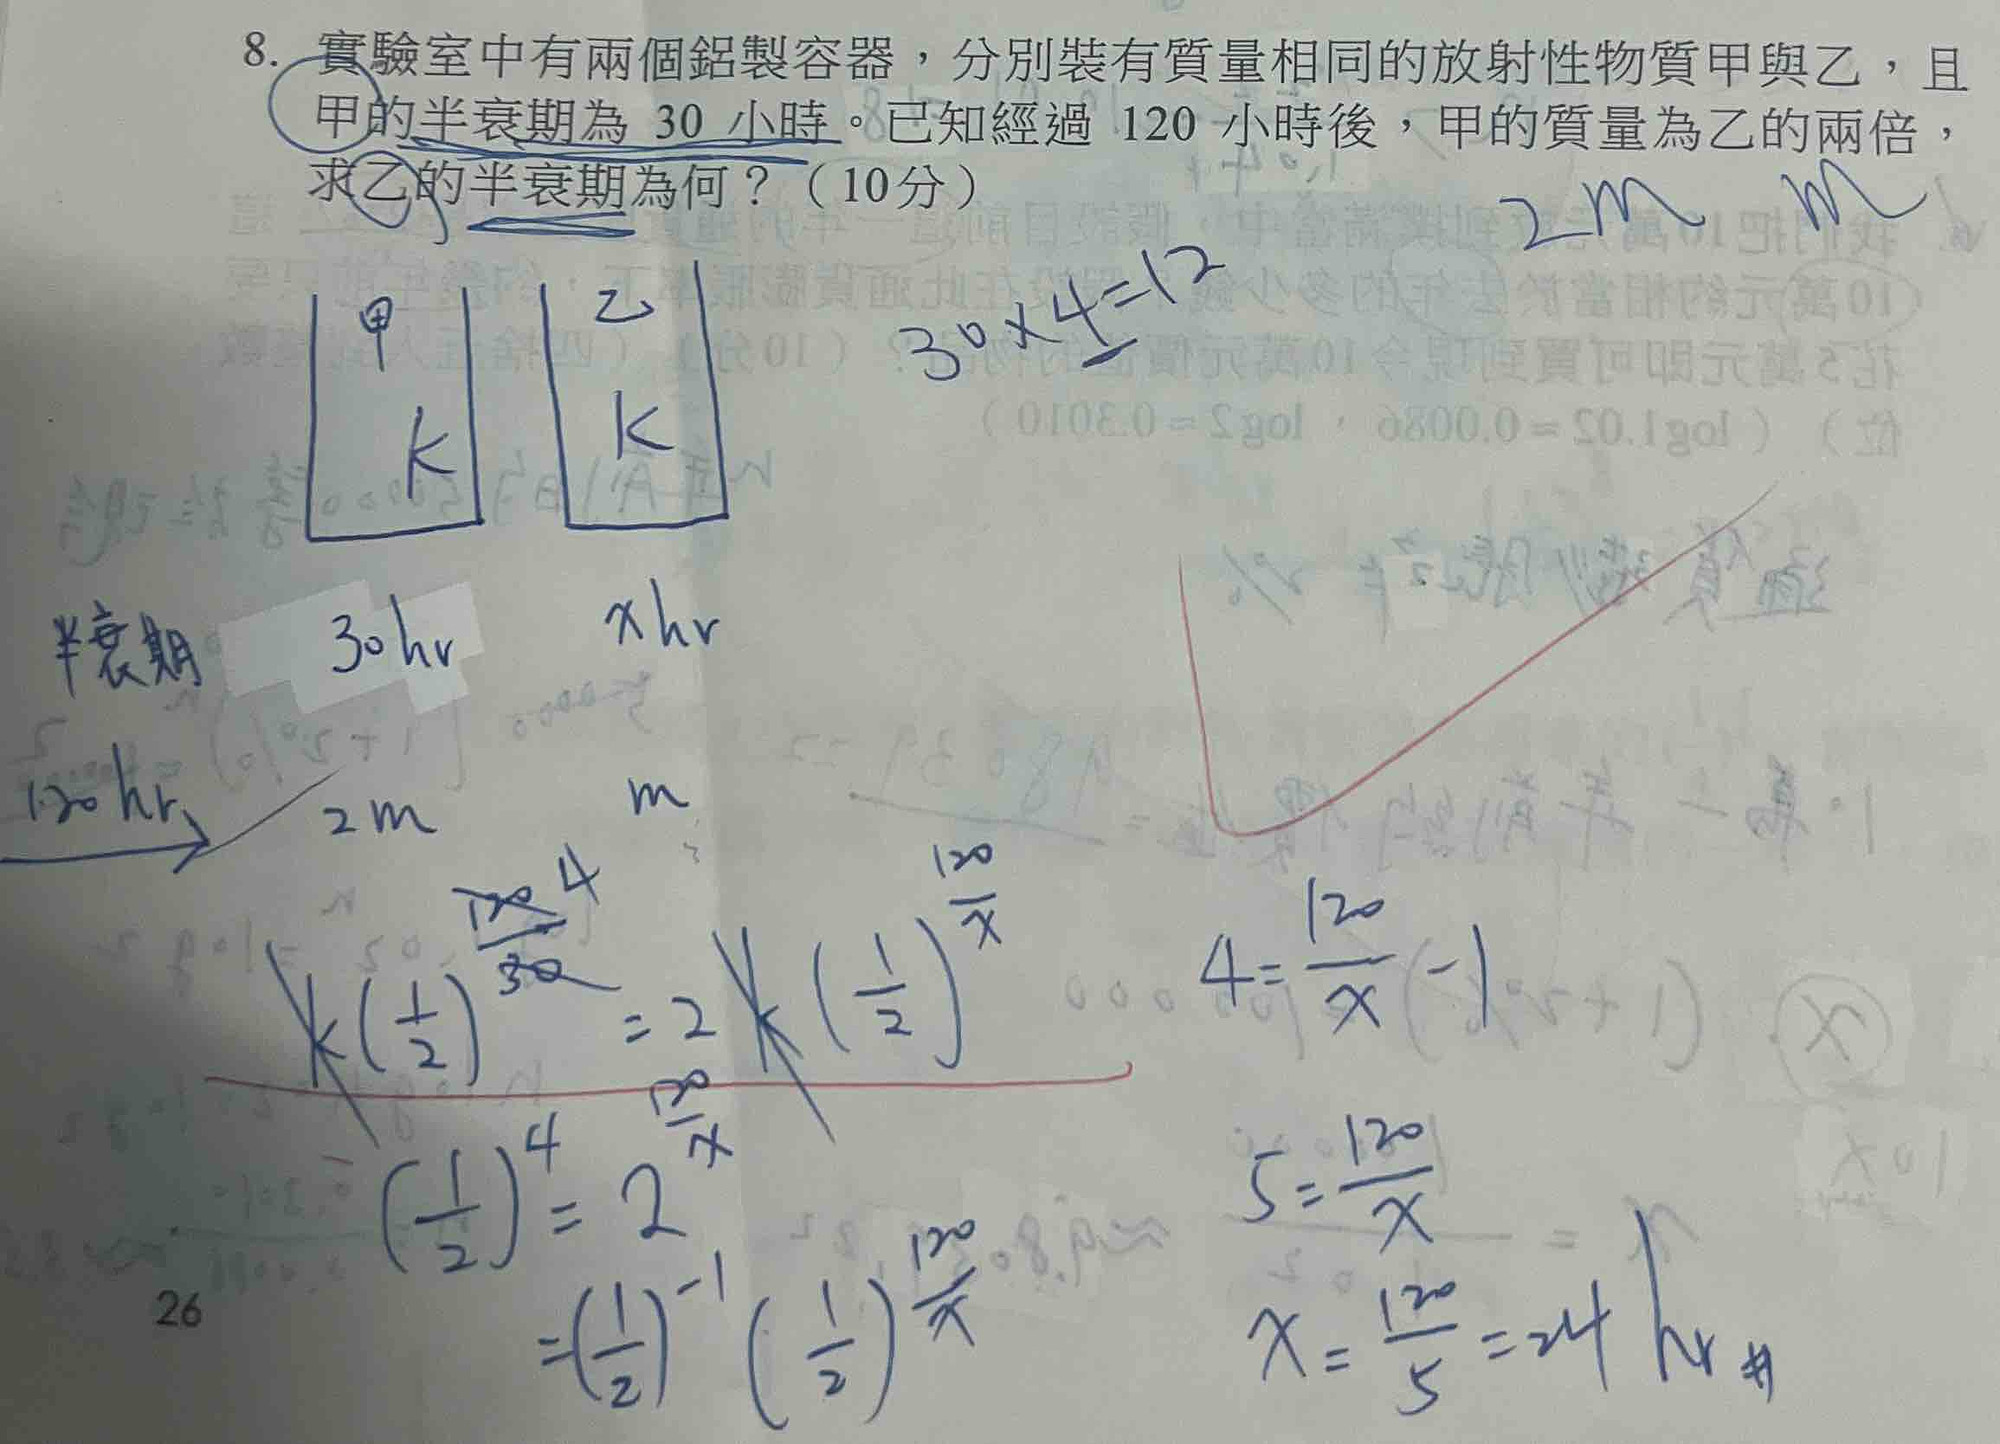 8. 實驗室中有兩個鋁製容器，分別裝有質量相同的放射性物質甲與乙，且
甲的半衰期為 30 小時。已知經過 120 小時後，甲的質量為乙的兩倍，
求乙的半衰期為何？（10分）
2m m
30×4=12
甲 乙
k k
半衰期 30hr xhr
120hr → 2m m
k(1/2)^(120/30) 4 = 2k(1/2)^(120/x)
(1/2)^4 = 2^(120/x)
=(1/2)^-1 (1/2)^(120/x)
4=120/x -1
5=120/x
x=120/5=24hr #
26